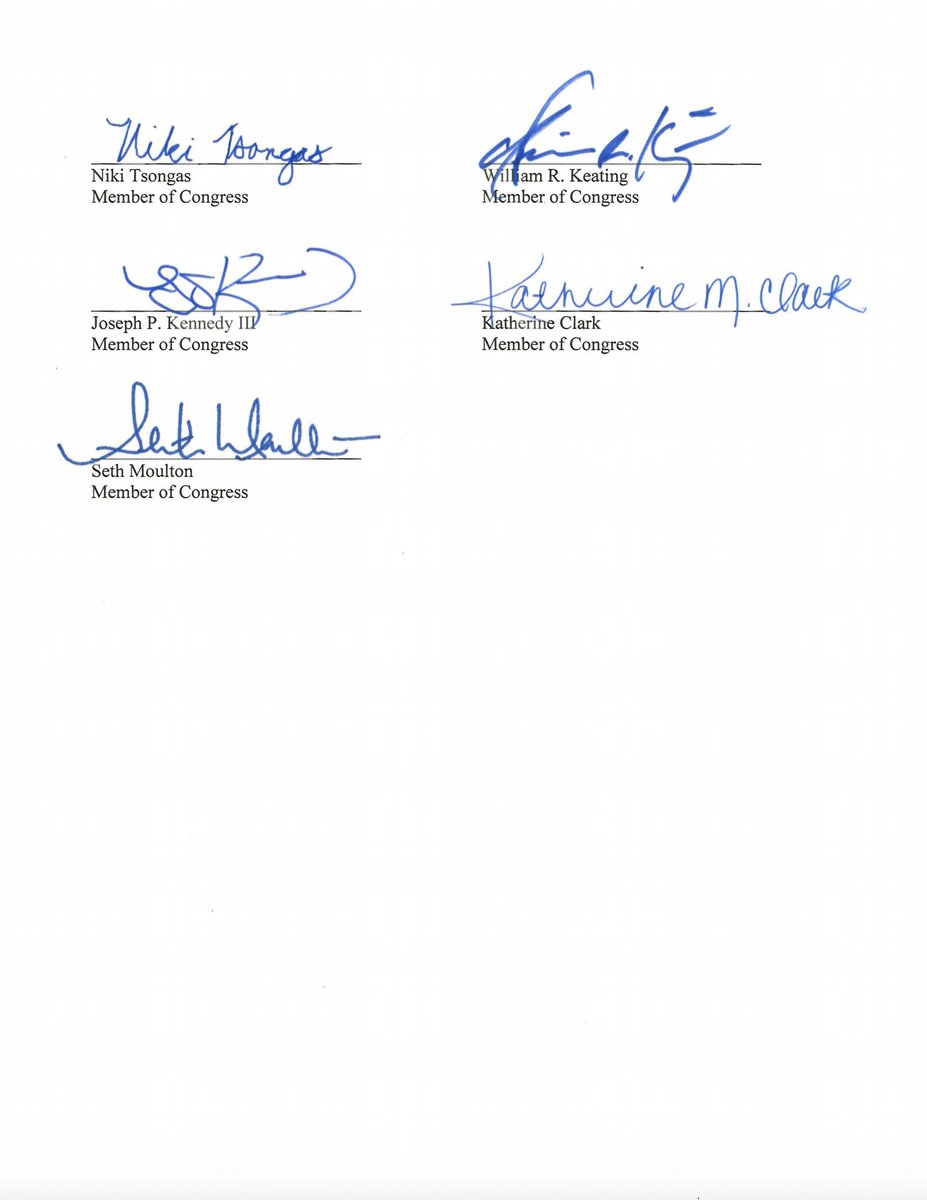 Niki Tsongas
Niki Tsongas
Member of Congress
William R. Keating
Member of Congress
Joseph P. Kennedy III
Member of Congress
Katherine M. Clark
Katherine Clark
Member of Congress
Seth Moulton
Seth Moulton
Member of Congress